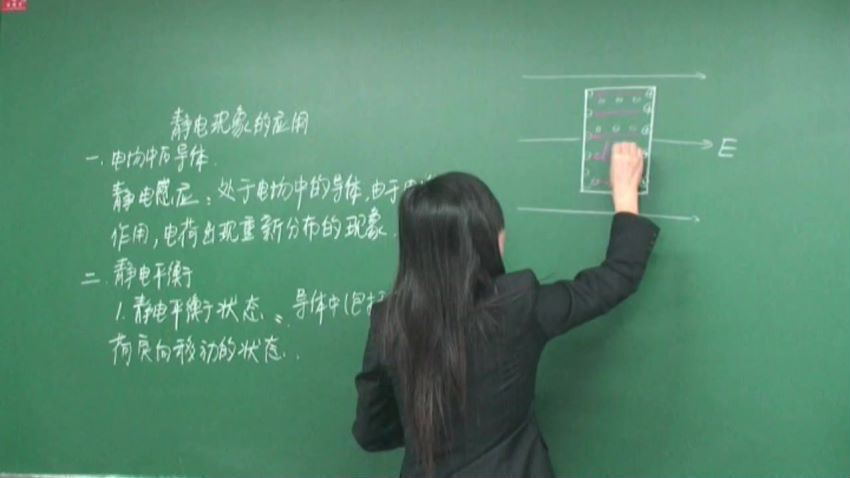 静电现象的应用
一.电场中的导体.
静电感应：处于电场中的导体,由于
作用,电荷出现重新分布的现象.
二.静电平衡
1.静电平衡状态： 导体中(包括
荷定向移动的状态.
E